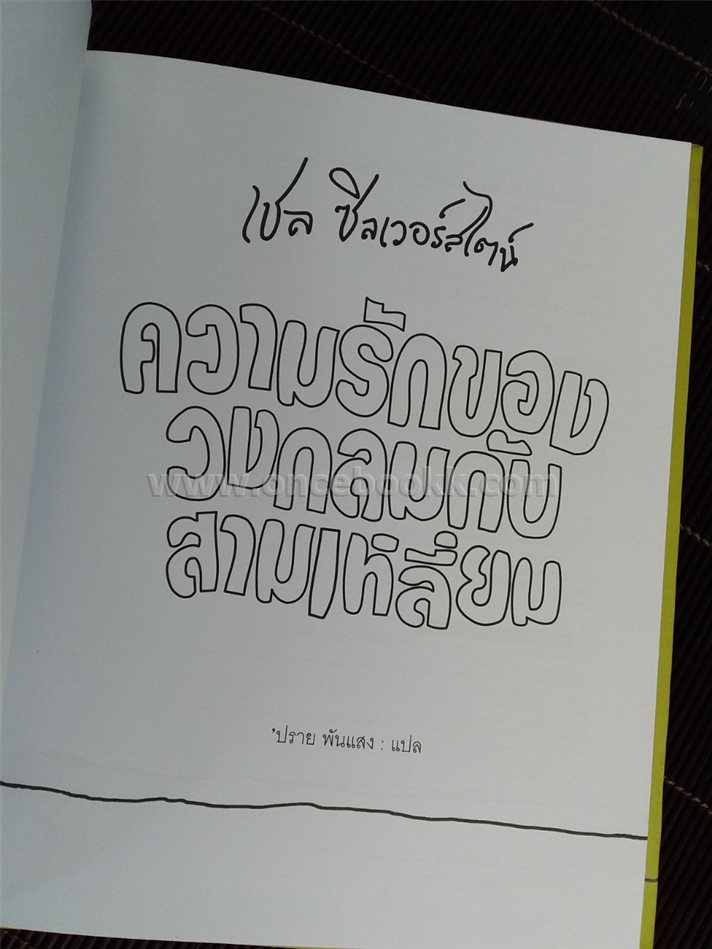 เชล ซิลเวอร์สไตน์
ความรักของ
วงกลมกับ
สามเหลี่ยม
www.oncebookk.com
'ปราย พันแสง : แปล